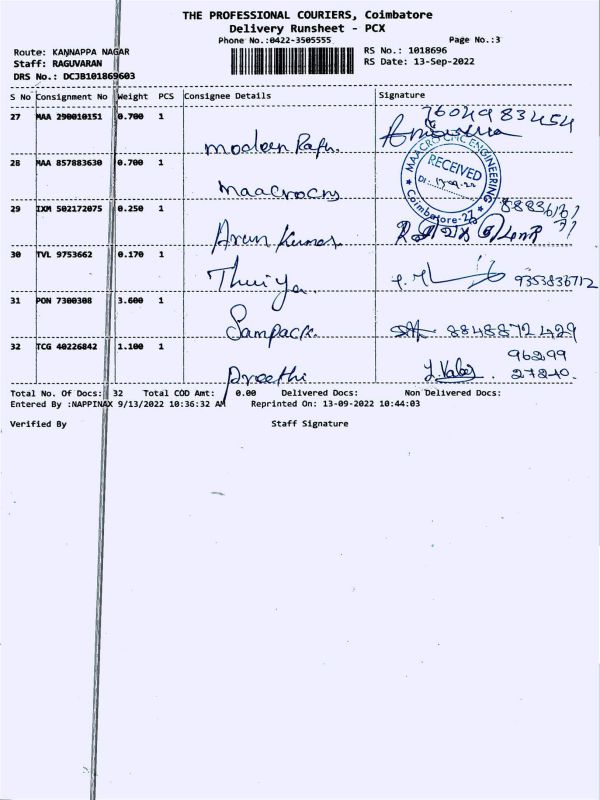 THE PROFESSIONAL COURIERS, Coimbatore
Delivery Runsheet - PCX
Phone No.:0422-3505555 Page No.:3
Route: KANNAPPA NAGAR RS No.: 1018696
Staff: RAGUVARAN RS Date: 13-Sep-2022
DRS No.: DCJB101869603
S No Consignment No Weight PCS Consignee Details Signature
27 MAA 290010151 0.700 1
7604983454
modern
28 MAA 857883630 0.700 1
MAACRO CIVIL ENGINEERING
RECEIVED
Coimbatore-27
29 IXM 502172075 0.250 1
Arun Kumar
30 TVL 9753662 0.170 1
9353836712
31 PON 7300308 3.600 1
Sampack. 8848872429
32 TCG 40226842 1.100 1
96299
Preethi 27240.
Total No. Of Docs: 32 Total COD Amt: 0.00 Delivered Docs: Non Delivered Docs:
Entered By :NAPPINAX 9/13/2022 10:36:32 AM Reprinted On: 13-09-2022 10:44:03
Verified By Staff Signature